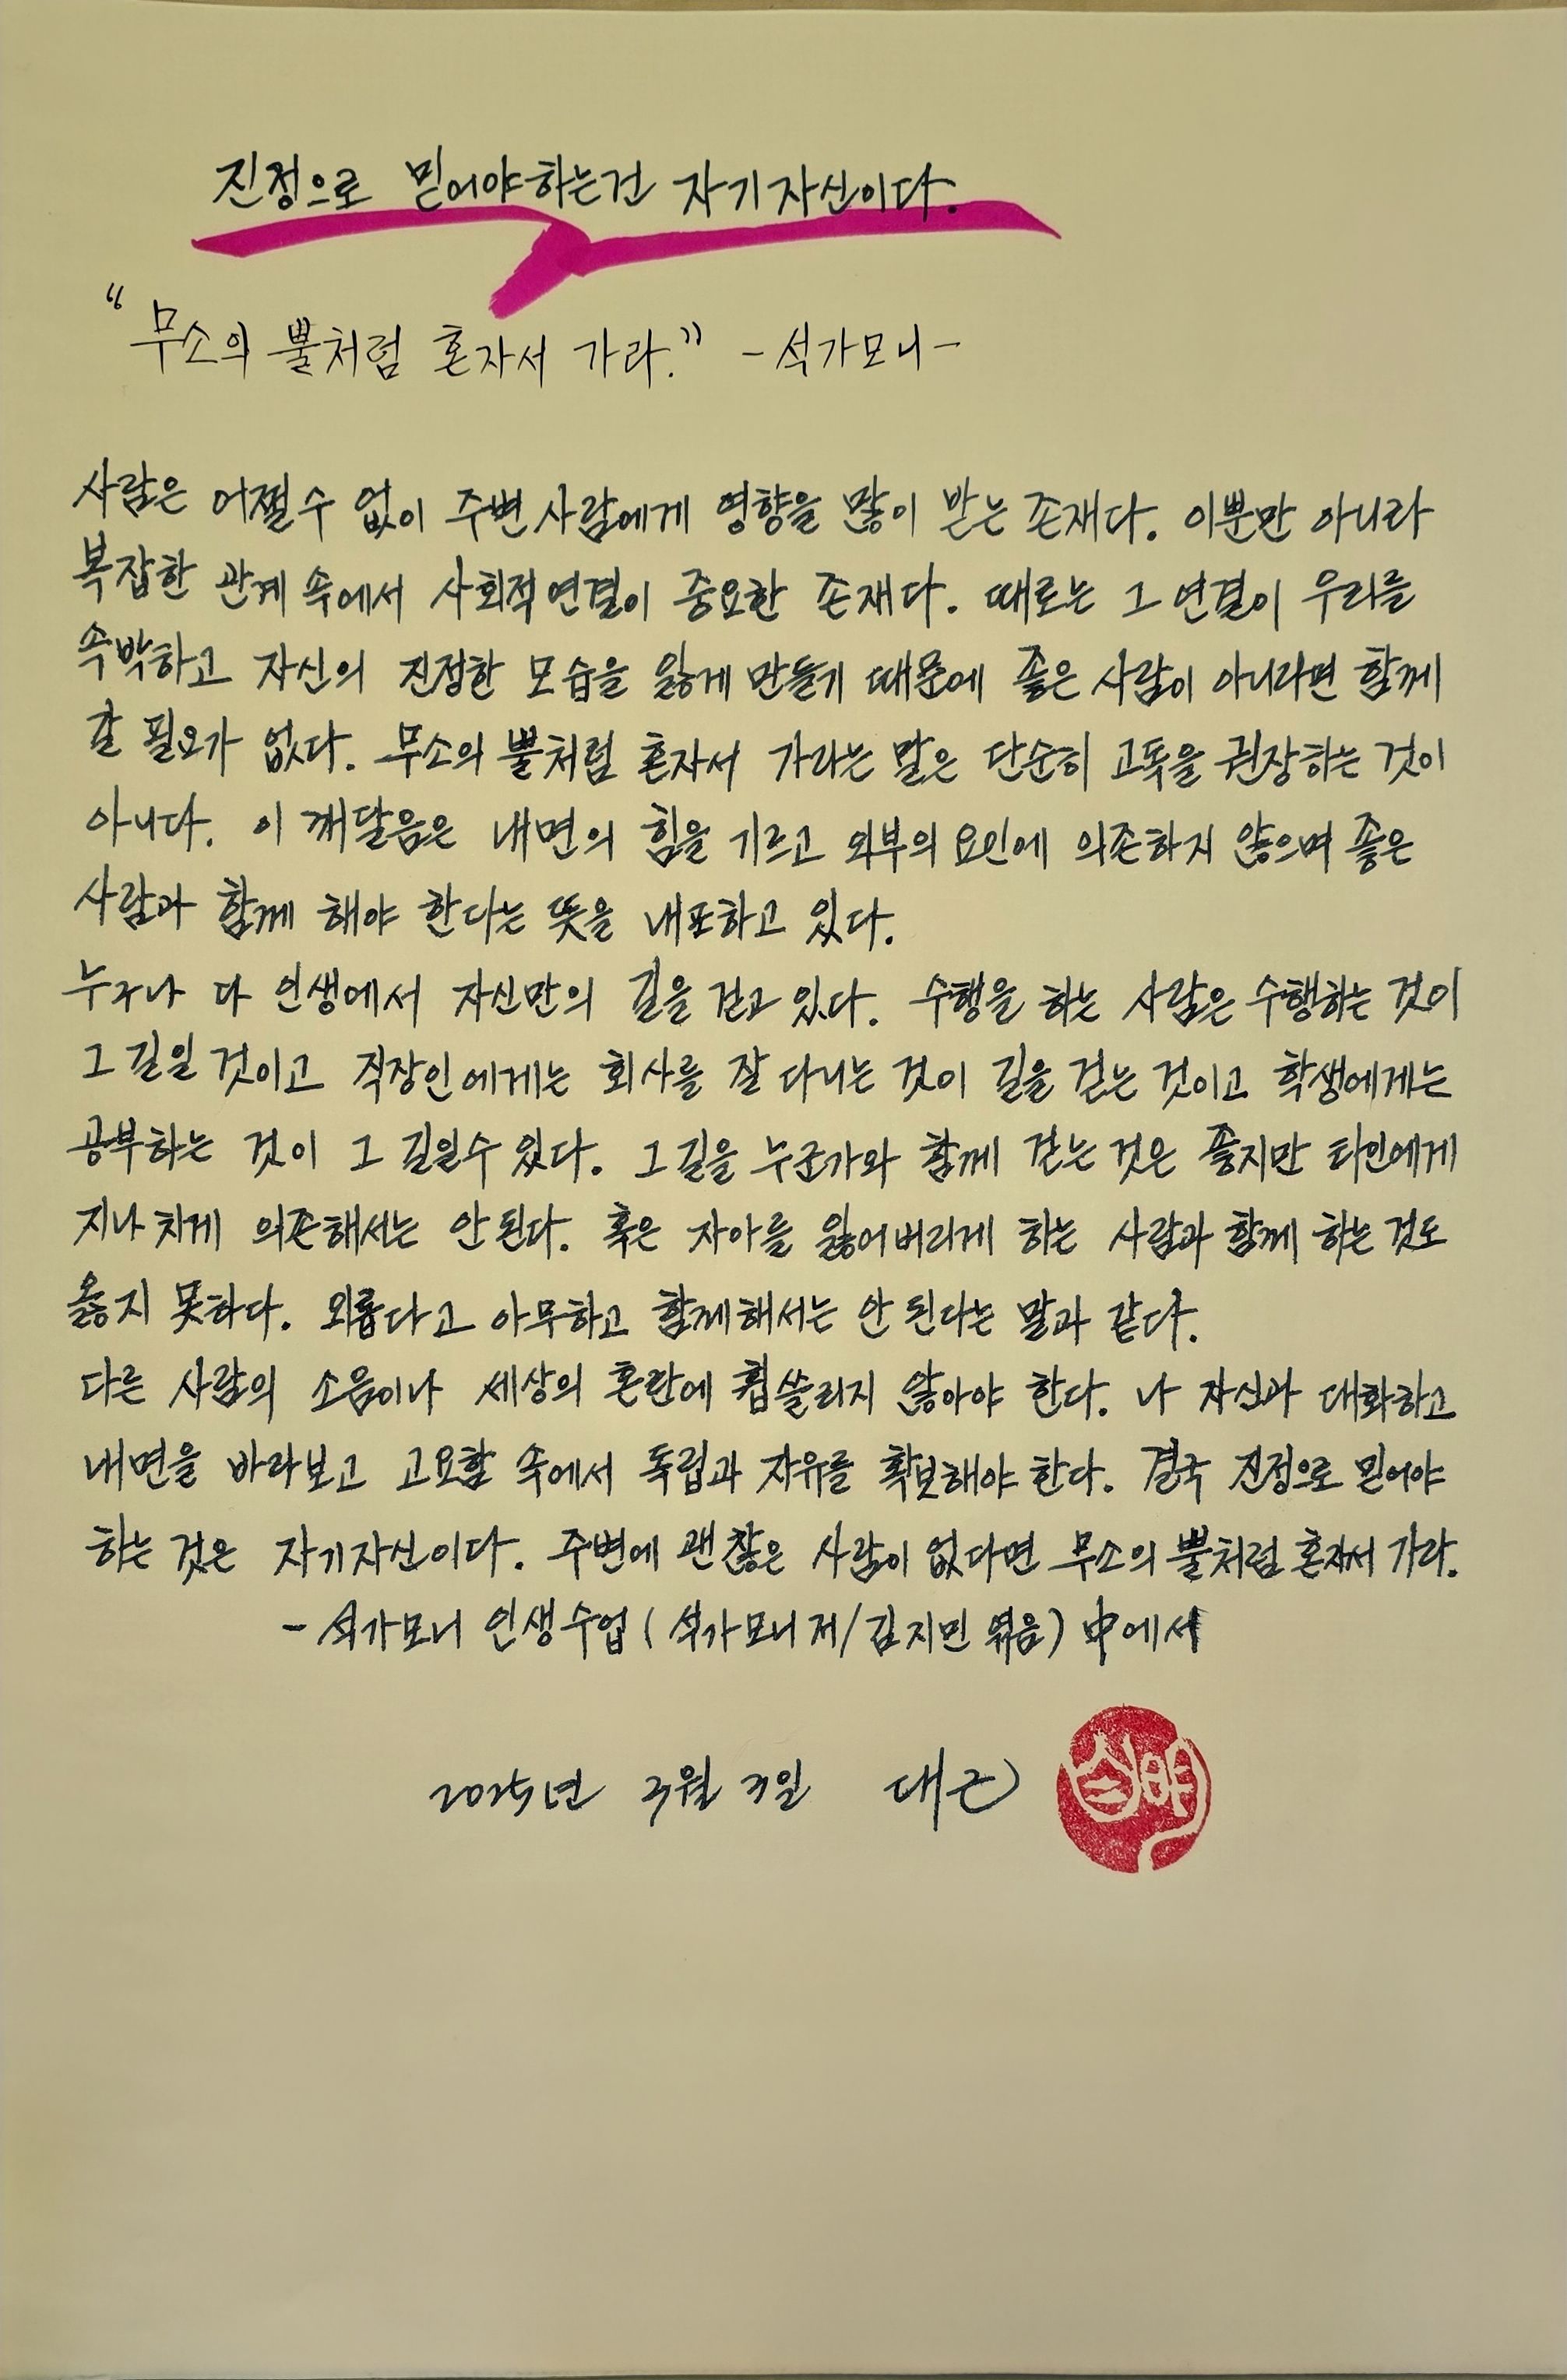 진정으로 믿어야하는건 자기자신이다.
"무소의 뿔처럼 혼자서 가라." -석가모니-
사람은 어쩔수 없이 주변사람에게 영향을 많이 받는 존재다. 이뿐만 아니라
복잡한 관계 속에서 사회적연결이 중요한 존재다. 때로는 그 연결이 우리를
속박하고 자신의 진정한 모습을 잃게 만들기 때문에 좋은 사람이 아니라면 함께
갈 필요가 없다. 무소의 뿔처럼 혼자서 가라는 말은 단순히 고독을 권장하는 것이
아니다. 이 깨달음은 내면의 힘을 기르고 외부의 요인에 의존하지 않으며 좋은
사람과 함께 해야 한다는 뜻을 내포하고 있다.
누구나 다 인생에서 자신만의 길을 걷고 있다. 수행을 하는 사람은 수행하는 것이
그 길일 것이고 직장인에게는 회사를 잘 다니는 것이 길을 걷는 것이고 학생에게는
공부하는 것이 그 길일수 있다. 그 길을 누군가와 함께 걷는 것은 좋지만 타인에게
지나치게 의존해서는 안 된다. 혹은 자아를 잃어버리게 하는 사람과 함께 하는 것도
옳지 못하다. 외롭다고 아무하고 함께해서는 안 된다는 말과 같다.
다른 사람의 소음이나 세상의 혼란에 휩쓸리지 않아야 한다. 나 자신과 대화하고
내면을 바라보고 고요함 속에서 독립과 자유를 확보해야 한다. 결국 진정으로 믿어야
하는 것은 자기자신이다. 주변에 괜찮은 사람이 없다면 무소의 뿔처럼 혼자서 가라.
- 석가모니 인생수업 (석가모니 저/김지민 엮음) 中에서
2025년 3월 3일 대근